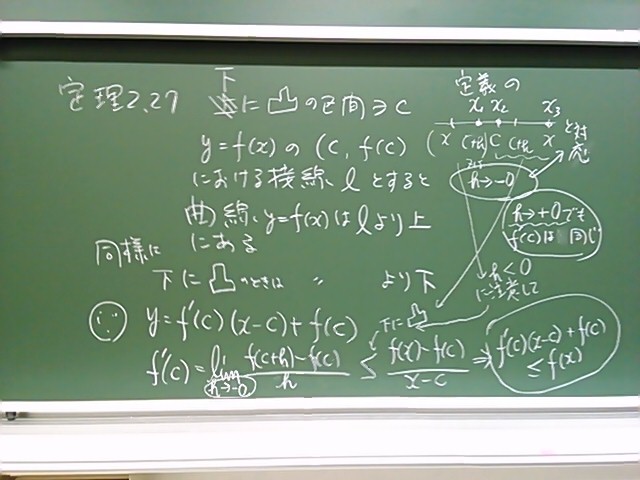 定理2.27
下に凸の区間∋c
y=f(x)の(c, f(c))
における接線ℓとすると
曲線y=f(x)はℓより上
にある
同様に
下に凸のときは 〃 より下
y=f'(c)(x-c)+f(c)
f'(c)=lim h→-0 f(c+h)-f(c) / h ≦ f(x)-f(c) / x-c ⇒ f'(c)(x-c)+f(c) ≦f(x)
定義の
x₁ x₂ x₃
(x c+h c c+h x
と対応
h→-0
h→+0でも
f'(c)は同じ
h<0
に注意して
下に凸